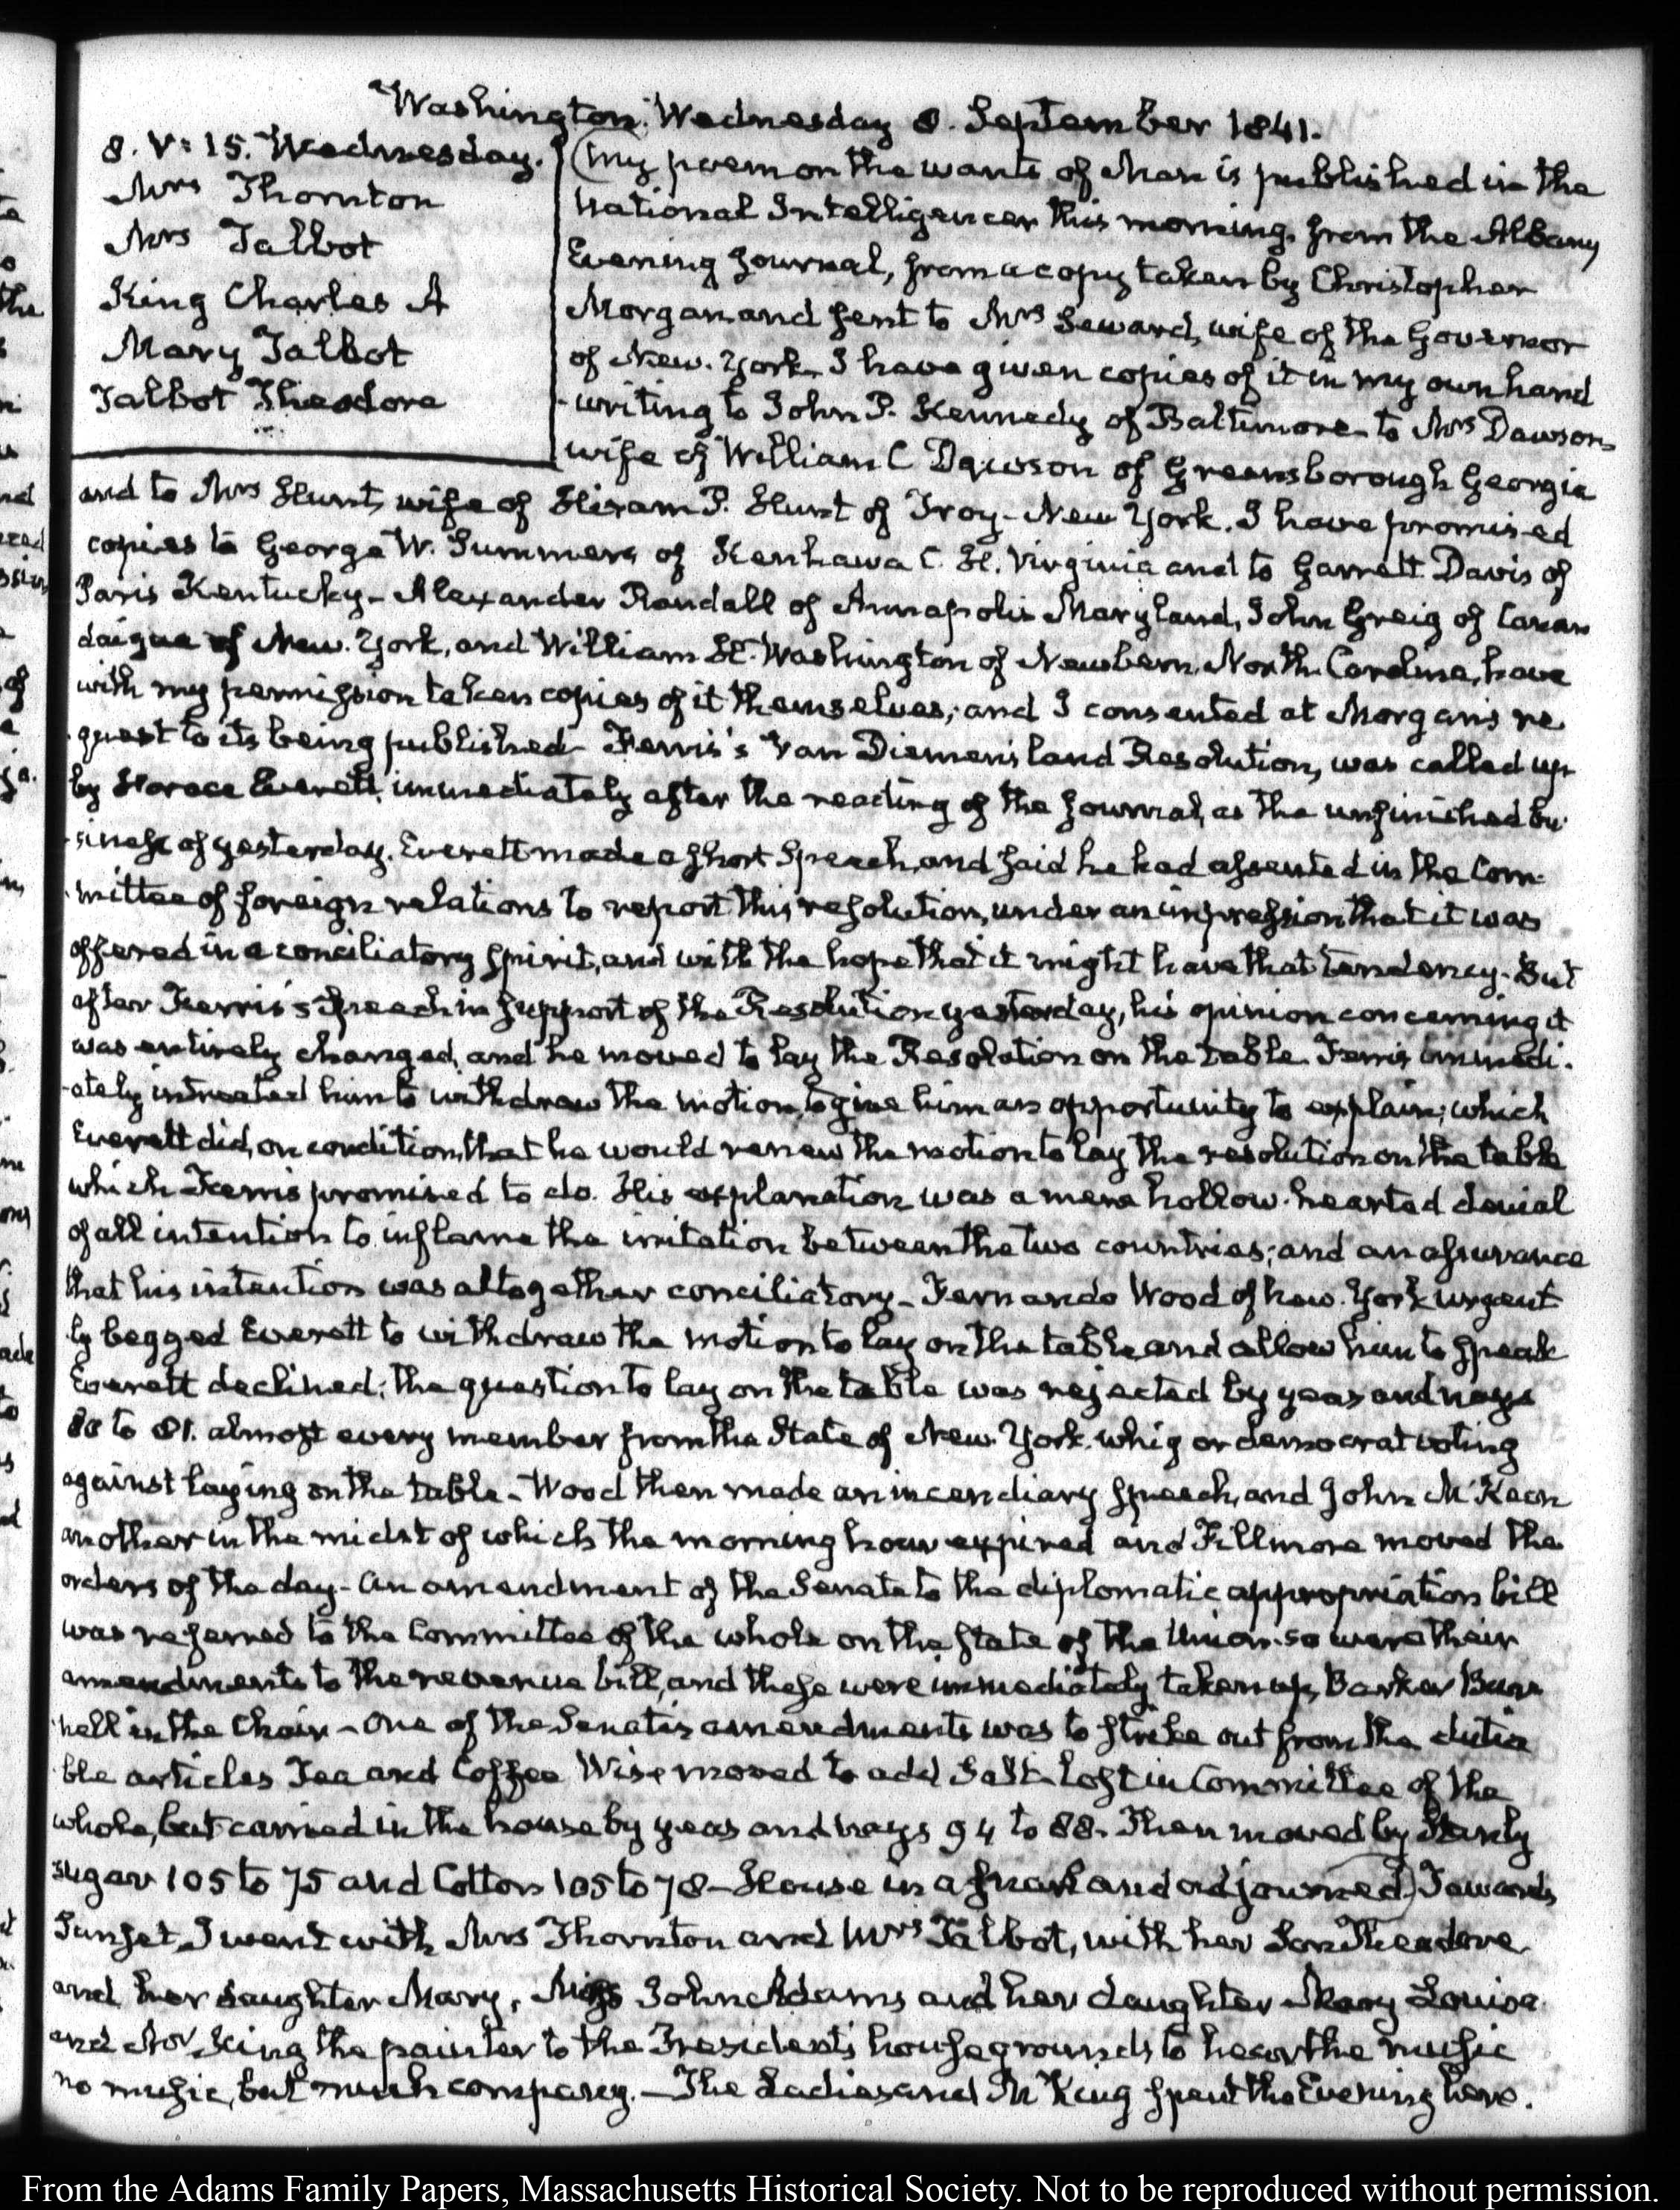 Washington. Wednesday 8. September 1841.
8. V: 15. Wednesday.
Mrs Thornton
Mrs Talbot
King Charles A
Mary Talbot
Talbot Theodore
(My poem on the wants of Man is published in the
National Intelligencer this morning, from the Albany
Evening Journal, from a copy taken by Christopher
Morgan and sent to Mrs Seward, wife of the Governor
of New-York. I have given copies of it in my own hand
-writing to John P. Kennedy of Baltimore, to Mrs Dawson,
wife of William C Dawson of Greensborough Georgia
and to Mrs Hunt, wife of Hiram P. Hunt of Troy-New York. I have promised
copies to George W. Summers of Kenhawa C. H. Virginia and to Garrett Davis of
Paris Kentucky- Alexander Randall of Annapolis Maryland, John Greig of Canan
daigua of New-York, and William H. Washington of Newbern, North Carolina, have
with my permission taken copies of it themselves; and I consented at Morgan's re
-quest to its being published- Ferris's Van Diemen's land Resolution, was called up
by Horace Everett, immediately after the reading of the Journal, as the unfinished bu-
-siness of yesterday. Everett made a short Speech, and said he had assented in the Com-
-mittee of foreign relations to report this resolution, under an impression that it was
offered in a conciliatory spirit, and with the hope that it might have that tendency. But
after Ferris's speech in support of the Resolution yesterday, his opinion concerning it
was entirely changed, and he moved to lay the Resolution on the table. Ferris immedi-
-ately intreated him to withdraw the motion, to give him an opportunity to explain; which
Everett did, on condition, that he would renew the motion to lay the resolution on the table
which Ferris promised to do. His explanation was a mere hollow-hearted denial
of all intention to inflame the irritation between the two countries; and an assurance
that his intention was altogether conciliatory- Fernando Wood of New-York urgent
ly begged Everett to withdraw the motion to lay on the table and allow him to speak
Everett declined; the question to lay on the table was rejected by yeas and nays
80 to 81. almost every member from the State of New-York. whig or democrat voting
against laying on the table- Wood then made an incendiary speech, and John McKeon
another in the midst of which the morning hour expired and Fillmore moved the
orders of the day- An amendment of the Senate to the diplomatic appropriation bill
was referred to the Committee of the whole on the state of the Union. so were their
amendments to the revenue bill, and these were immediately taken up, Barker Bur
nell in the Chair- One of the Senate's amendments was to strike out from the dutia
ble articles Tea and Coffee Wise moved to add Salt- lost in Committee of the
whole, but carried in the house by yeas and nays 94 to 88. Then moved by Stanly
sugar 105 to 75 and Cotton 105 to 78- House in a snarl and adjourned.) Towards
Sunset, I went with Mrs Thornton and Mrs Talbot, with her Son Theodore
and her daughter Mary, Mrs John Adams and her daughter Mary Louisa
and Mr King the painter to the President's house grounds to hear the music
no music, but much company.- The Ladies and Mr King spent the Evening here.
From the Adams Family Papers, Massachusetts Historical Society. Not to be reproduced without permission.